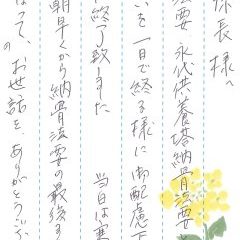 係長 様へ
法要 永代供養塔納骨法要
いを一日で終る様に御配慮下
終了致しました 当日は
朝早くから納骨法要の最後ま
って、お世話をありがとうござ